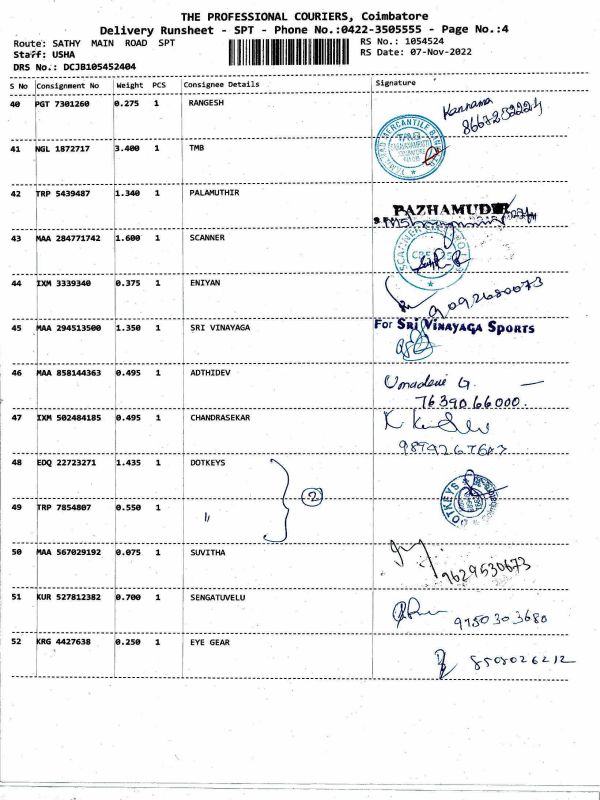 THE PROFESSIONAL COURIERS, Coimbatore
Delivery Runsheet - SPT - Phone No.:0422-3505555 - Page No.:4
Route: SATHY MAIN ROAD SPT
RS No.: 1054524
Staff: USHA
RS Date: 07-Nov-2022
DRS No.: DCJB105452404
S No Consignment No Weight PCS Consignee Details Signature
40 PGT 7301260 0.275 1 RANGESH
Kannama
41 NGL 1872717 3.400 1 TMB
TAMILNAD MERCANTILE BANK
42 TRP 5439487 1.340 1 PALAMUTHIR
PAZHAMUDIR
43 MAA 284771742 1.600 1 SCANNER
SCANNER
44 IXM 3339340 0.375 1 ENIYAN
9092680073
45 MAA 294513500 1.350 1 SRI VINAYAGA
For SRI VINAYAGA SPORTS
46 MAA 858144363 0.495 1 ADTHIDEV
Umadevi G.
76390.66000.
47 IXM 502484185 0.495 1 CHANDRASEKAR
48 EDQ 22723271 1.435 1 DOTKEYS
2
DOTKEYS
49 TRP 7854807 0.550 1 "
50 MAA 567029192 0.075 1 SUVITHA
9629530673
51 KUR 527812382 0.700 1 SENGATUVELU
9750303680
52 KRG 4427638 0.250 1 EYE GEAR
8508026212